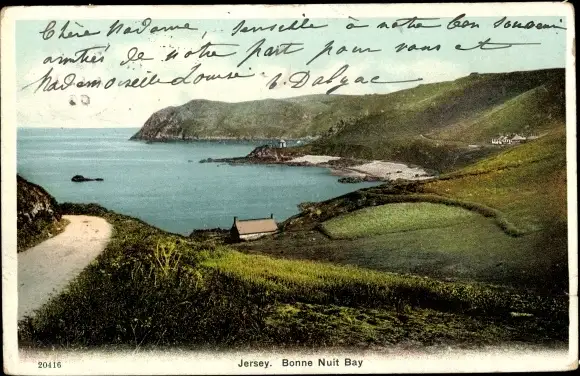 Chère Madame, sensible à notre bon souvenir
amitiés de notre part pour vous et
Mademoiselle Louise
20416 Jersey. Bonne Nuit Bay